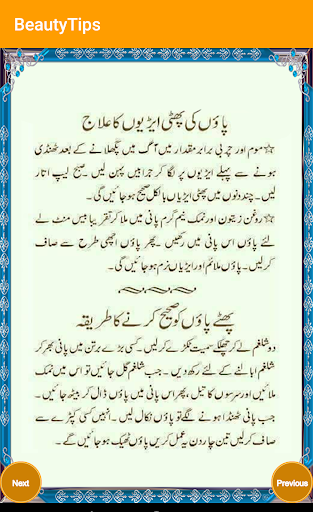 BeautyTips
پاؤں کی پھٹی ایڑیوں کا علاج
☆موم اور چربی برابر مقدار میں آگ میں پگھلانے کے بعد ٹھنڈی
ہونے سے پہلے ایڑیوں پر لگا کر جرابیں پہن لیں۔ صبح لیپ اتار
لیں۔ چند دنوں میں پھٹی ایڑیاں بالکل صحیح ہو جائیں گی۔
☆روغن زیتون اور نمک نیم گرم پانی میں ملا کر تقریباً بیس منٹ کے
لئے پاؤں اس پانی میں رکھیں۔ پھر پاؤں اچھی طرح سے صاف
کر لیں۔ پاؤں ملائم اور ایڑیاں نرم ہو جائیں گی۔
پھٹے پاؤں کو صحیح کرنے کا طریقہ
دو شلغم لے کر چھلکے سمیت ٹکڑے کر لیں۔ کسی بڑے برتن میں پانی بھر کر
شلغم ابالنے کے لئے رکھ دیں۔ جب شلغم گل جائیں تو اس میں نمک
ملائیں اور سرسوں کا تیل، پھر اس پانی میں پاؤں ڈال کر بیٹھ جائیں۔
جب پانی ٹھنڈا ہونے لگے تو پاؤں نکال لیں۔ انہیں کسی کپڑے سے
صاف کر لیں تین چار دن یہ عمل کریں پاؤں ٹھیک ہو جائیں گے۔
Next
Previous